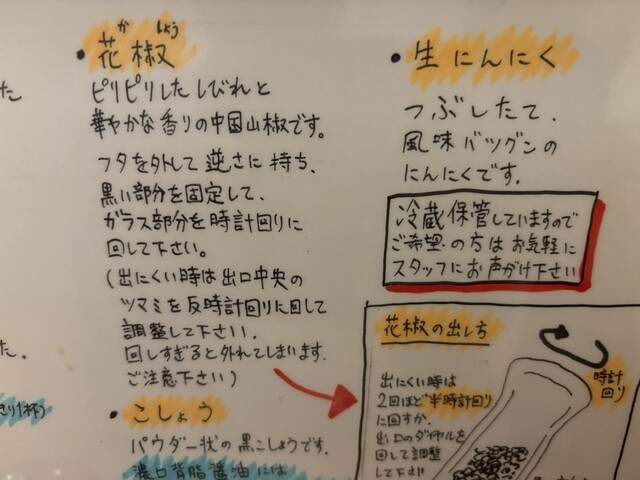 た
か しょう
・花椒
ピリピリしたしびれと
華やかな香りの中国山椒です。
フタを外して逆さに持ち、
黒い部分を固定して、
ガラス部分を時計回りに
回して下さい。
(出にくい時は出口中央の
ツマミを反時計回りに回して
調整して下さい.
回しすぎると外れてしまいます.
ご注意下さい)
た.
さり1杯)
・こしょう
パウダー状の黒こしょうです.
濃口背脂醤油には
・生にんにく
つぶしたて.
風味バツグンの
にんにくです.
冷蔵保管していますので
ご希望の方はお気軽に
スタッフにお声がけ下さい
花椒の出し方
出にくい時は
2回ほど半時計回り
に回すか.
出口のダイヤルを
回して調整
して下さい
時計
回り